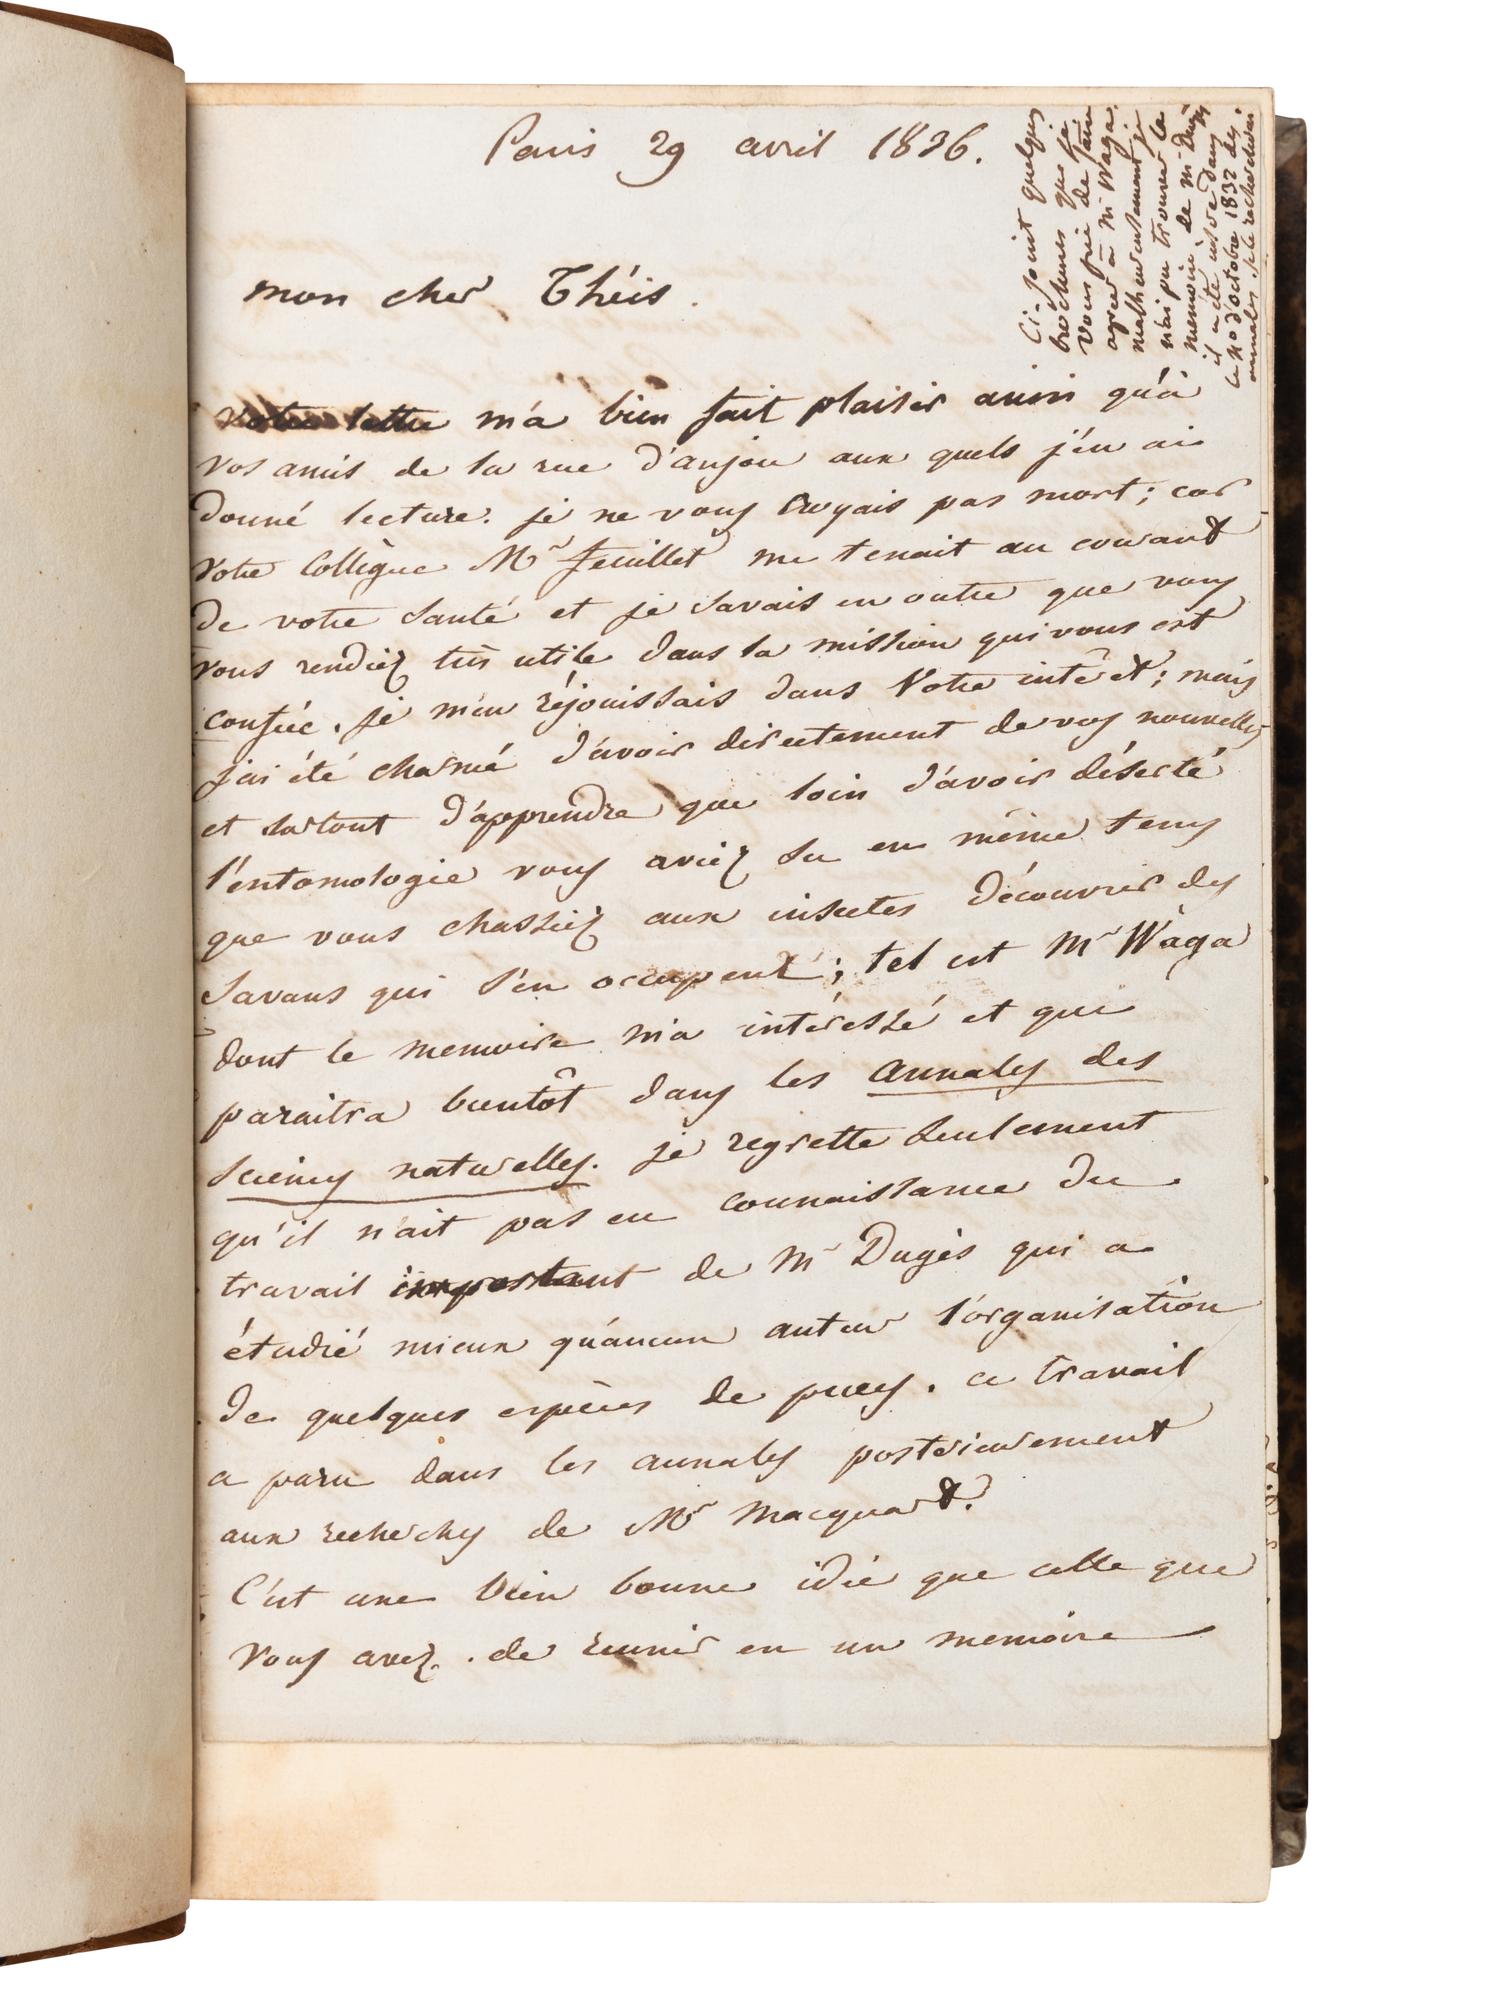 Paris 29 avril 1836.
mon cher Théis.
votre lettre m'a bien fait plaisir ainsi qu'a
vos amis de la rue d'anjou aux quels j'en ai
donné lecture. je ne vous croyais pas mort; car
votre Collègue Mr feuillet me tenait au courant
de votre santé et je savais en outre que vous
vous rendiez très utile dans la mission qui vous est
confiée. je m'en réjouissais dans votre intérêt; mais
j'ai été charmé d'avoir directement de vos nouvelles
et surtout d'apprendre que loin d'avoir déserté
l'entomologie vous aviez su en même tems
que vous chassiez aux insectes découvrir des
savans qui s'en occupent; tel est Mr Waga
dont le memoire m'a intéressé et qui
paraitra bientôt dans les annales des
sciences naturelles. je regrette seulement
qu'il n'ait pas eu connaissance du
travail important de Mr Dugès qui a
étudié mieux qu'aucun auteur l'organisation
de quelques espèces de puces. ce travail
a paru dans les annales posterieurement
aux recherches de Mr Macquart.
C'est une bien bonne idée que celle que
vous avez de reunir en un memoire
Ci-joint quelques
brochures que je
vous prie de faire
agréer à Mr Waga.
malheureusement je
n'ai pu trouver le
memoire de Mr Dugès
il a été inséré dans
le no d'octobre 1832 des
annales. je le rechercherai